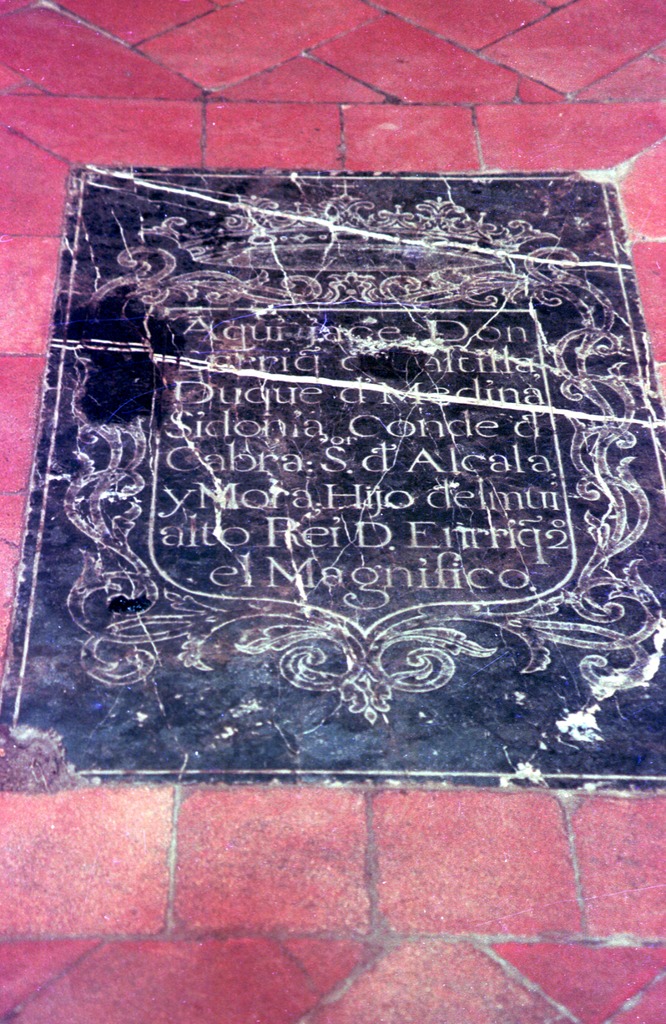 Aqui iace Don
Enrriq̃ d Castilla,
Duque d' Medina
Sidonia, Conde d'
Cabra: S.ᵒʳ d' Alcala,
y Mora. Hijo del mui
alto Rei D. Enrriq̃ 2º
el Magnifico.